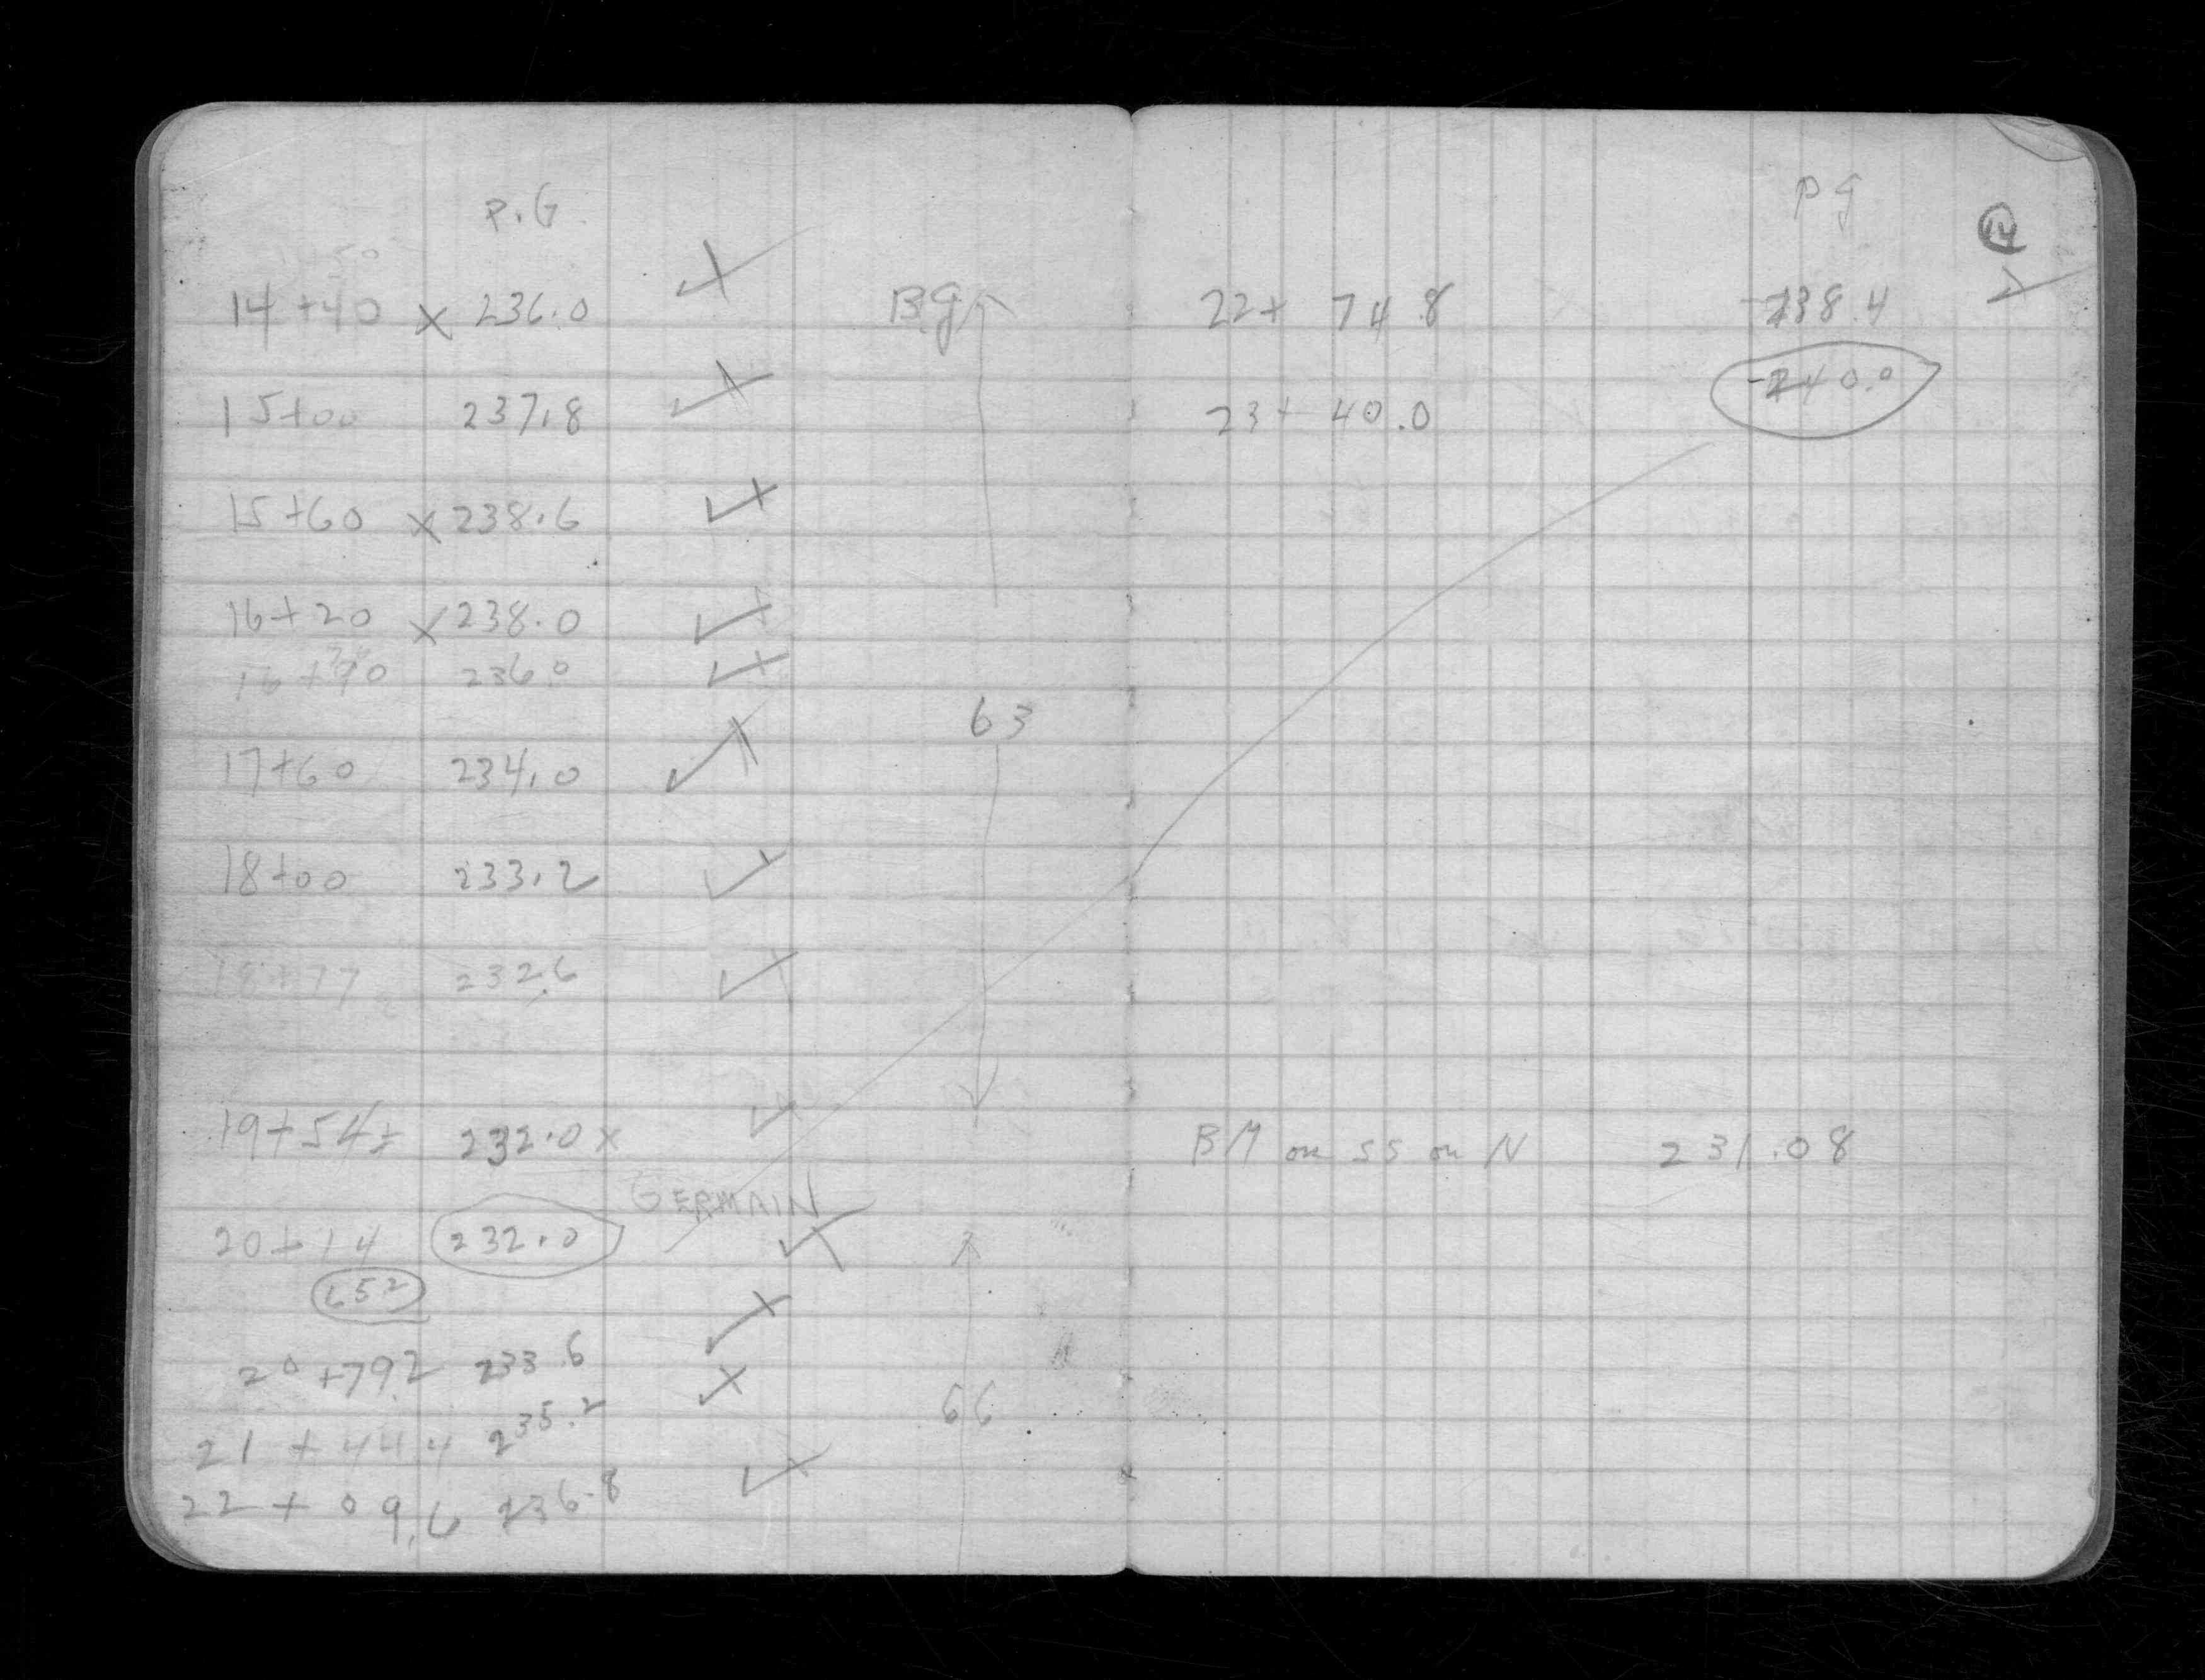 P.G
14+40 × 236.0 Bg
15+00 237.8
15+60 × 238.6
16+20 × 238.0
236.0
63
17+60 234.0
18+00 233.2
18+77 232.6
19+54± 232.0 ×
GERMAIN
20+14 232.0
652
20+79.2 233.6
21+44.4 235.2
66
22+09.6 236.8
PG
14
22+74.8 238.4
23+40.0 240.0
BM on SS on N 231.08